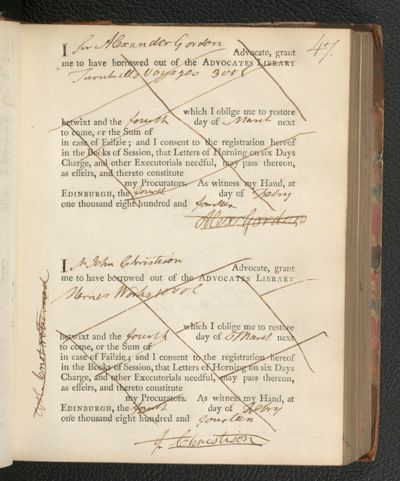 47.
I Sir Alexander Gordon Advocate, grant
me to have borrowed out of the ADVOCATES LIBRARY
Turnbulls Voyages 3 vol
which I oblige me to restore
betwixt and the fourth day of March next
to come, or the Sum of
in case of Failzie; and I consent to the registration hereof
in the Books of Session, that Letters of Horning on six Days
Charge, and other Executorials needful, may pass thereon,
as effeirs, and thereto constitute
my Procurators. As witness my Hand, at
EDINBURGH, the fourth day of Febry
one thousand eight hundred and fourteen
Alex Gordon
I Mr John Christison Advocate, grant
me to have borrowed out of the ADVOCATES LIBRARY
vol
which I oblige me to restore
betwixt and the fourth day of March next
to come, or the Sum of
in case of Failzie; and I consent to the registration hereof
in the Books of Session, that Letters of Horning on six Days
Charge, and other Executorials needful, may pass thereon,
as effeirs, and thereto constitute
my Procurators. As witness my Hand, at
EDINBURGH, the fourth day of Febry
one thousand eight hundred and fourteen
J. Christison